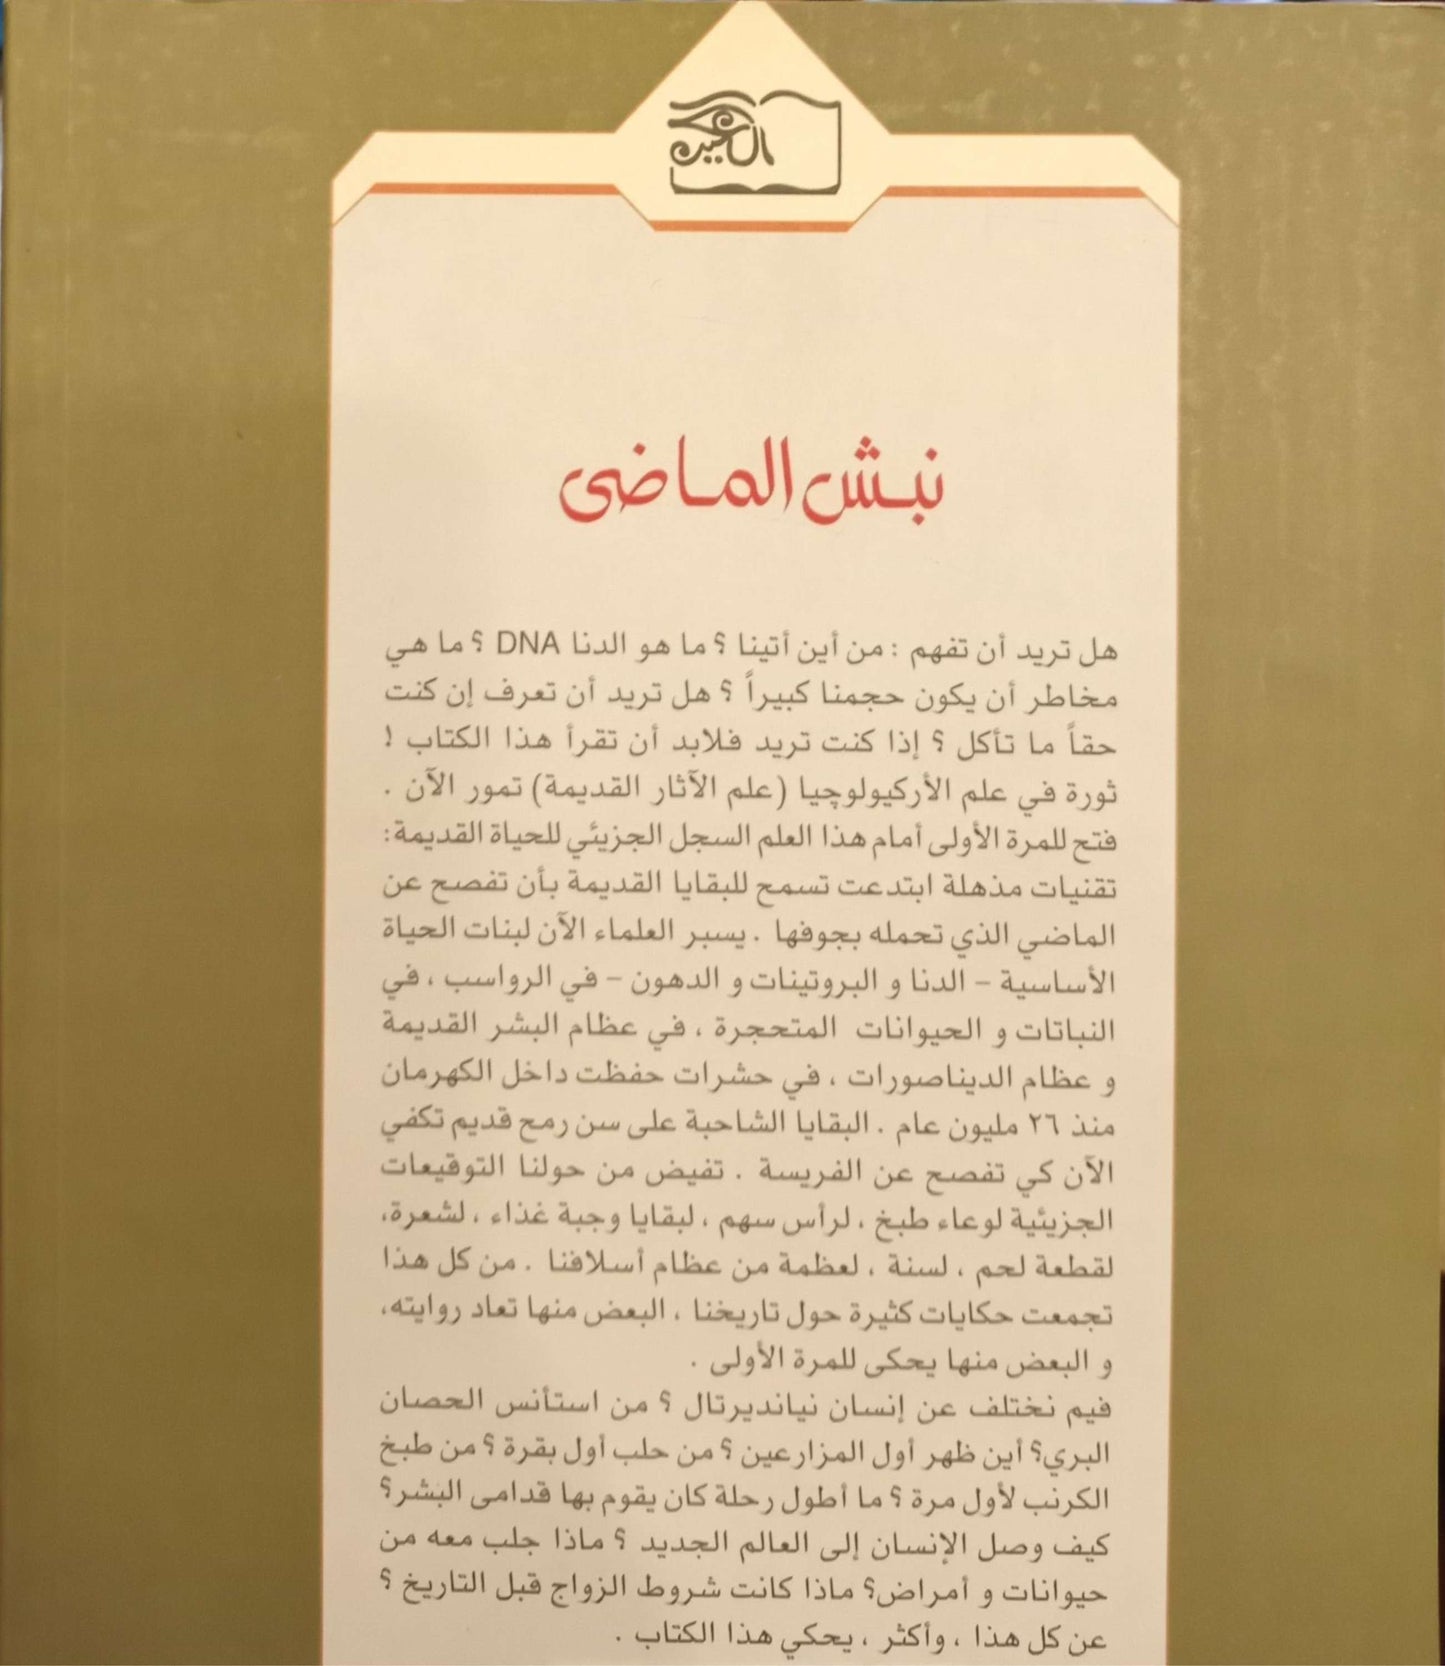 العين
نبش الماضى
هل تريد أن تفهم : من أين أتينا ؟ ما هو الدنا DNA ؟ ما هي
مخاطر أن يكون حجمنا كبيراً ؟ هل تريد أن تعرف إن كنت
حقاً ما تأكل ؟ إذا كنت تريد فلابد أن تقرأ هذا الكتاب !
ثورة في علم الأركيولوچيا (علم الآثار القديمة) تمور الآن .
فتح للمرة الأولى أمام هذا العلم السجل الجزيئي للحياة القديمة:
تقنيات مذهلة ابتدعت تسمح للبقايا القديمة بأن تفصح عن
الماضي الذي تحمله بجوفها . يسبر العلماء الآن لبنات الحياة
الأساسية – الدنا و البروتينات و الدهون – في الرواسب ، في
النباتات و الحيوانات المتحجرة ، في عظام البشر القديمة
و عظام الديناصورات ، في حشرات حفظت داخل الكهرمان
منذ ٢٦ مليون عام . البقايا الشاحبة على سن رمح قديم تكفي
الآن كي تفصح عن الفريسة . تفيض من حولنا التوقيعات
الجزيئية لوعاء طبخ ، لرأس سهم ، لبقايا وجبة غذاء ، لشعرة،
لقطعة لحم ، لسنة ، لعظمة من عظام أسلافنا . من كل هذا
تجمعت حكايات كثيرة حول تاريخنا ، البعض منها تعاد روايته،
و البعض منها يحكى للمرة الأولى .
فيم نختلف عن إنسان نيانديرتال ؟ من استأنس الحصان
البري؟ أين ظهر أول المزارعين ؟ من حلب أول بقرة ؟ من طبخ
الكرنب لأول مرة ؟ ما أطول رحلة كان يقوم بها قدامى البشر؟
كيف وصل الإنسان إلى العالم الجديد ؟ ماذا جلب معه من
حيوانات و أمراض؟ ماذا كانت شروط الزواج قبل التاريخ ؟
عن كل هذا ، وأكثر ، يحكي هذا الكتاب .